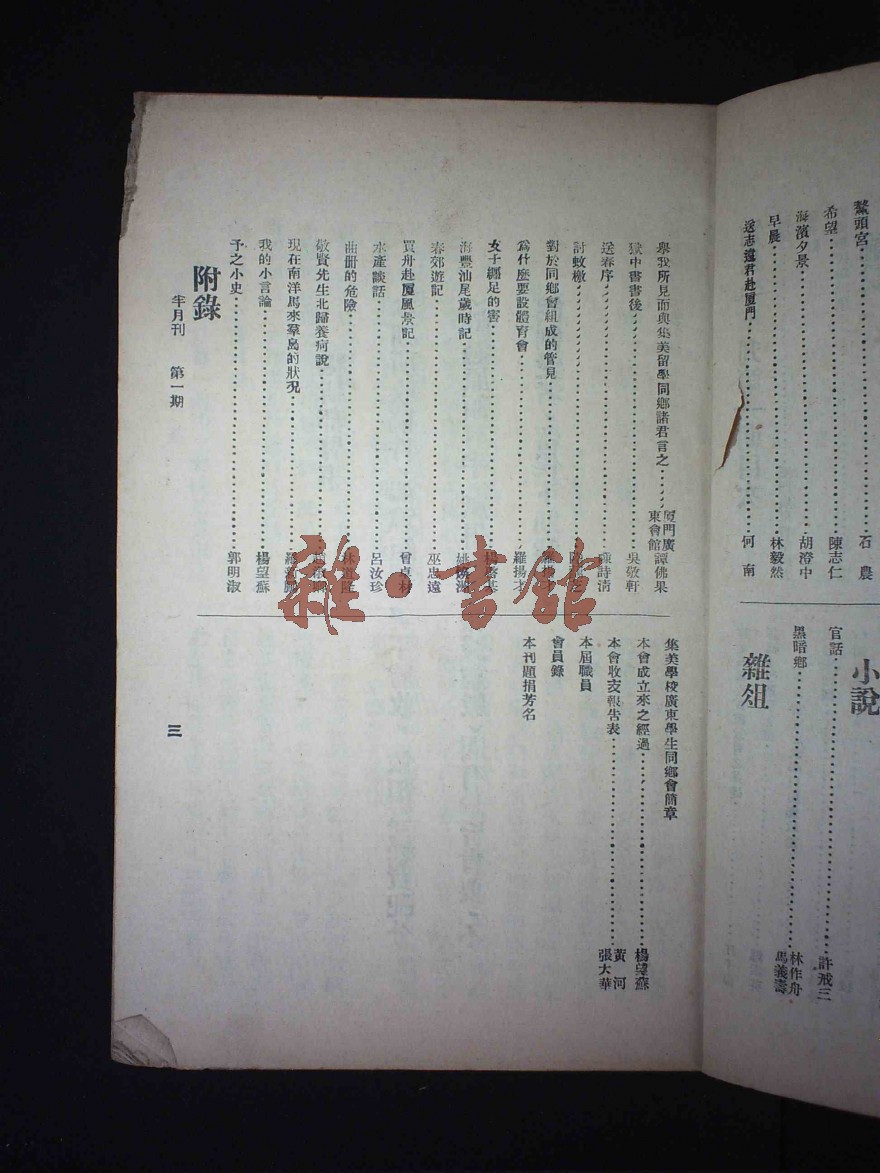 鰲頭宮……石農
希望……陳志仁
海濱夕景……胡澄中
早晨……林毅然
送志遠君赴厦門……何南
小說
官話……許戒三
黑暗鄉……林作舟 馬義濤
雜俎
舉我所見而與集美留學同鄉諸君言之……厦門廣東會館 譚佛果
獄中書書後……吳敬軒
送春序……陳時清
討蚊檄
對於同鄉會組成的管見
爲什麽要設體育會……羅揚才
女子纏足的害
海豐汕尾歲時記
春郊遊記……巫忠遠
買舟赴厦風景記……曾卓材
水產談話……呂汝珍
曲冊的危險
敬賢先生北歸養疴說
現在南洋馬來羣島的狀况
我的小言論……楊望蘇
予之小史……郭明淑
附錄
集美學校廣東學生同鄉會簡章
本會成立來之經過……楊望蘇
本會收支報告表……黃河 張大華
本屆職員
會員錄
本刊題捐芳名
半月刊 第一期
三
雜·書館